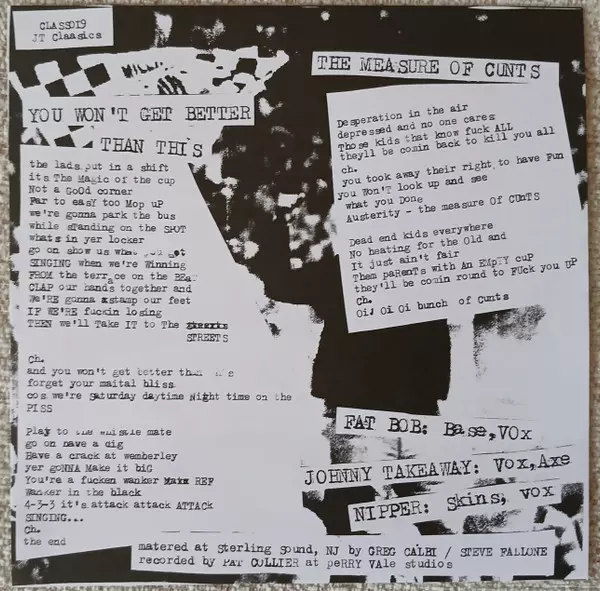 CLASS019
JT Claasics
YOU WON'T GET BETTER
THAN THIS
the lads put in a shift
its The Magic of the cup
Not a GoOd corner
Far to easy too Mop uP
we're gonna park the bus
while sTanDing on the SPOT
whats in yer locker
go on show us what you got
SINGING when we're Winning
FROM the terrace on the BEAT
CLAP our hands together and
We'RE gonna stamp our feet
IF WE'RE fuckin losing
THEN we'll Take IT to The
STREETS
Ch.
and you won't get better than
forget your maital bliss
cos we're Saturday daytime Night time on the
PISS
Play to the whistle mate
go on have a dig
Have a crack at wemberley
yer goNNA Make it biG
You're a fucken wanker REF
Wanker in the black
4-3-3 it's attack attack ATTACK
SINGING...
Ch.
the end
THE MEASURE OF CUNTS
Desperation in the air
depressed and no one cares
Those kids that know fuck ALL
theyll be comin back to kill you all
ch.
you took away their right to have Fun
you WOn'T look up and see
what you Done
Austerity - the measure of CUnTS
Dead end kids everywhere
No heating for the Old and
It just ain't fair
Them paRenTs with An EMpTY cuP
they'll be comin round to FUck you UP
Ch.
Oi! Oi Oi bunch of Cunts
FAT BOB: Base, VOx
JOHNNY TAKEAWAY: Vox, Axe
NIPPER: Skins, vox
matered at Sterling Sound, NJ by GREG CALBI / STEVE FALLONE
recorded by PAT COLLIER at peRRY VAle studios